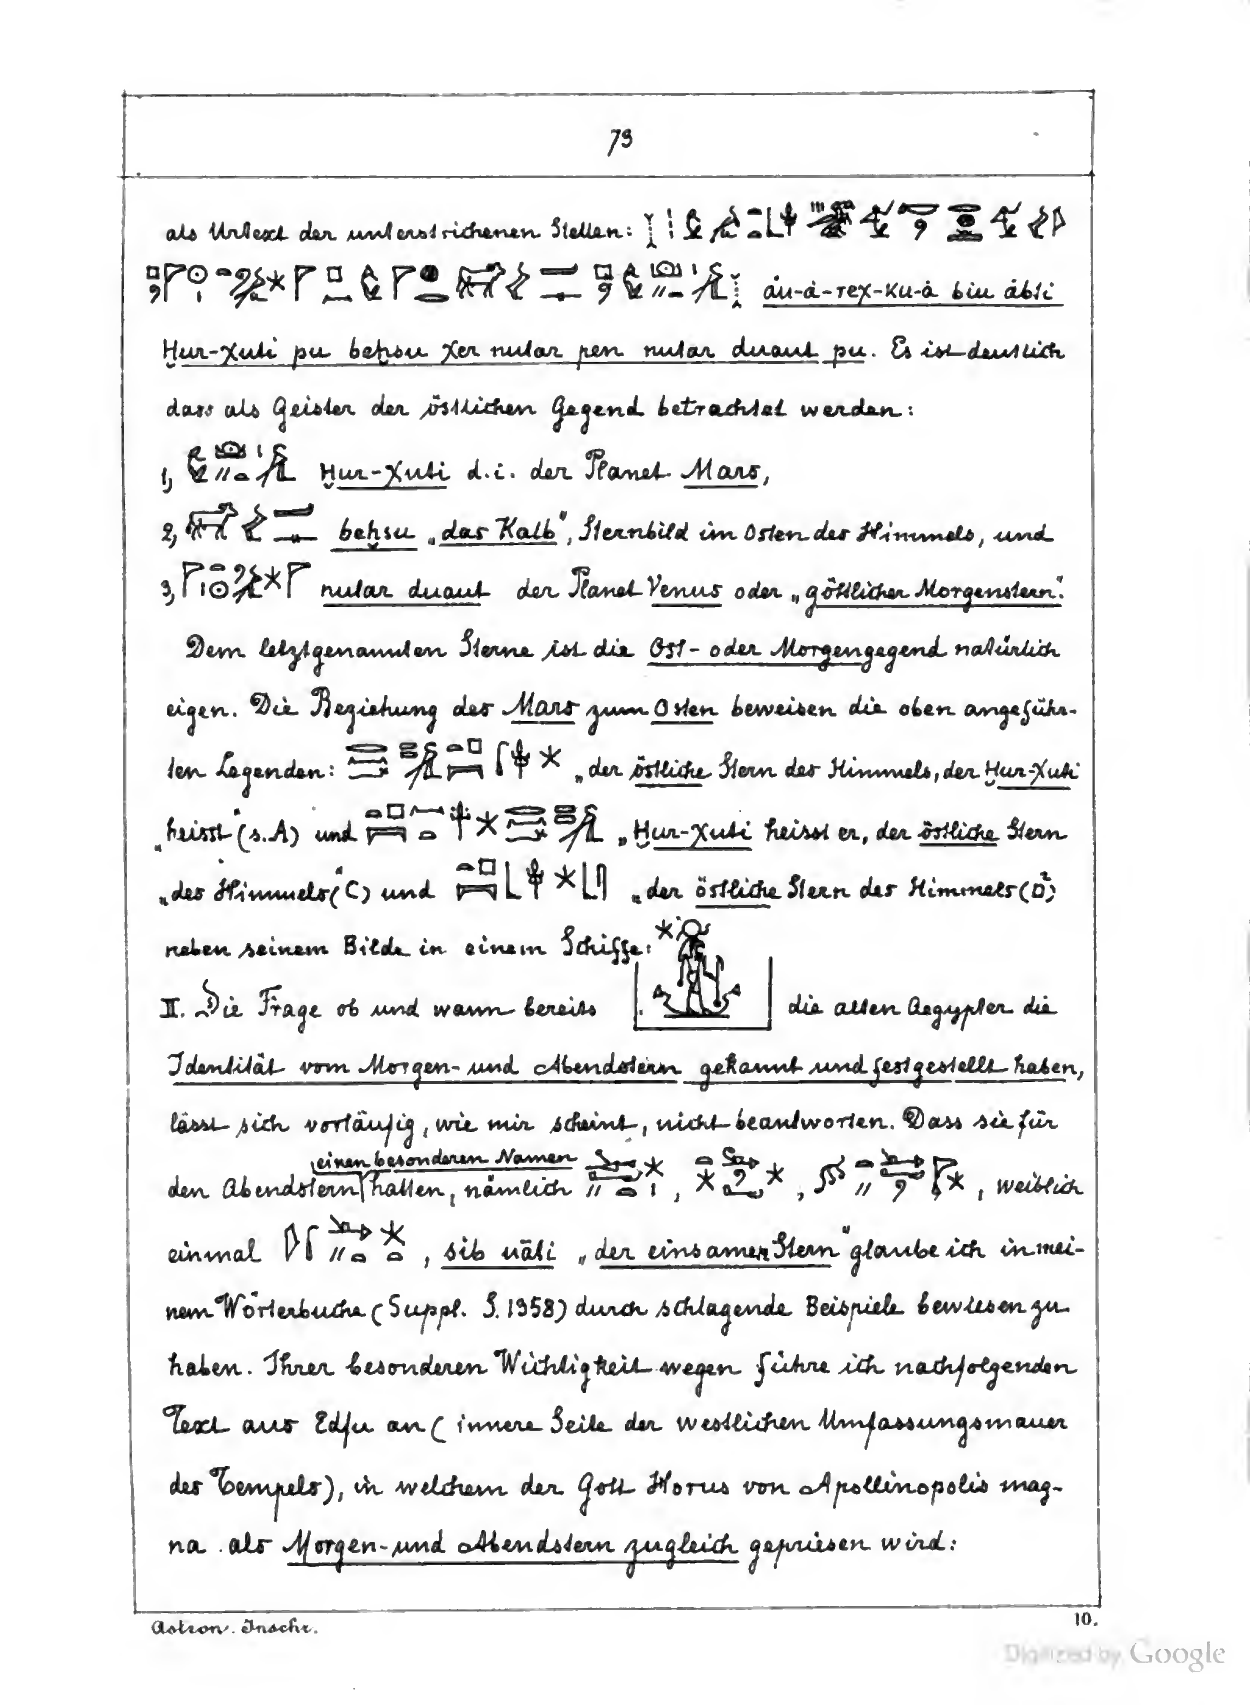 73
als Urtext der unterstrichenen Stellen:
áu-á-rex-ku-á biu ábti
Ḥur-χuti pu beḥsu χer nutar pen nutar duaut pu. Es ist deutlich
dass als Geister der östlichen Gegend betrachtet werden:
1, Ḥur-χuti d.i. der Planet Mars,
2, beḥsu „das Kalb", Sternbild im Osten des Himmels, und
3, nutar duaut der Planet Venus oder „göttlicher Morgenstern".
Dem letztgenannten Sterne ist die Ost- oder Morgengegend natürlich
eigen. Die Beziehung des Mars zum Osten beweisen die oben angeführ-
ten Legenden: „der östliche Stern des Himmels, der Ḥur-χuti
„heisst" (s. A) und „Ḥur-χuti heisst er, der östliche Stern
„des Himmels" (C) und „der östliche Stern des Himmels (D²)
neben seinem Bilde in einem Schiffe:
II. Die Frage ob und wann bereits die alten Aegypter die
Identität vom Morgen- und Abendstern gekannt und festgestellt haben,
lässt sich vorläufig, wie mir scheint, nicht beantworten. Dass sie für
einen besonderen Namen
den Abendstern hatten, nämlich , , , weiblich
einmal , sib uāti „der einsame Stern" glaube ich in mei-
nem Wörterbuche (Suppl. S. 1958) durch schlagende Beispiele bewiesen zu
haben. Ihrer besonderen Wichtigkeit wegen führe ich nachfolgenden
Text aus Edfu an (innere Seite der westlichen Umfassungsmauer
des Tempels), in welchem der Gott Horus von Apollinopolis mag-
na als Morgen- und Abendstern zugleich gepriesen wird:
Astron. Inschr.
10.
Digitized by Google